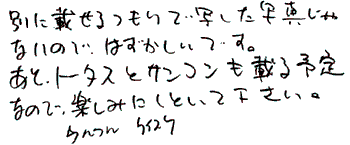 別に載せるつもりで写した写真じゃ
ないので、はずかしいです。
あと、トータスとサンコンも載る予定
なので、楽しみにしといて下さい。